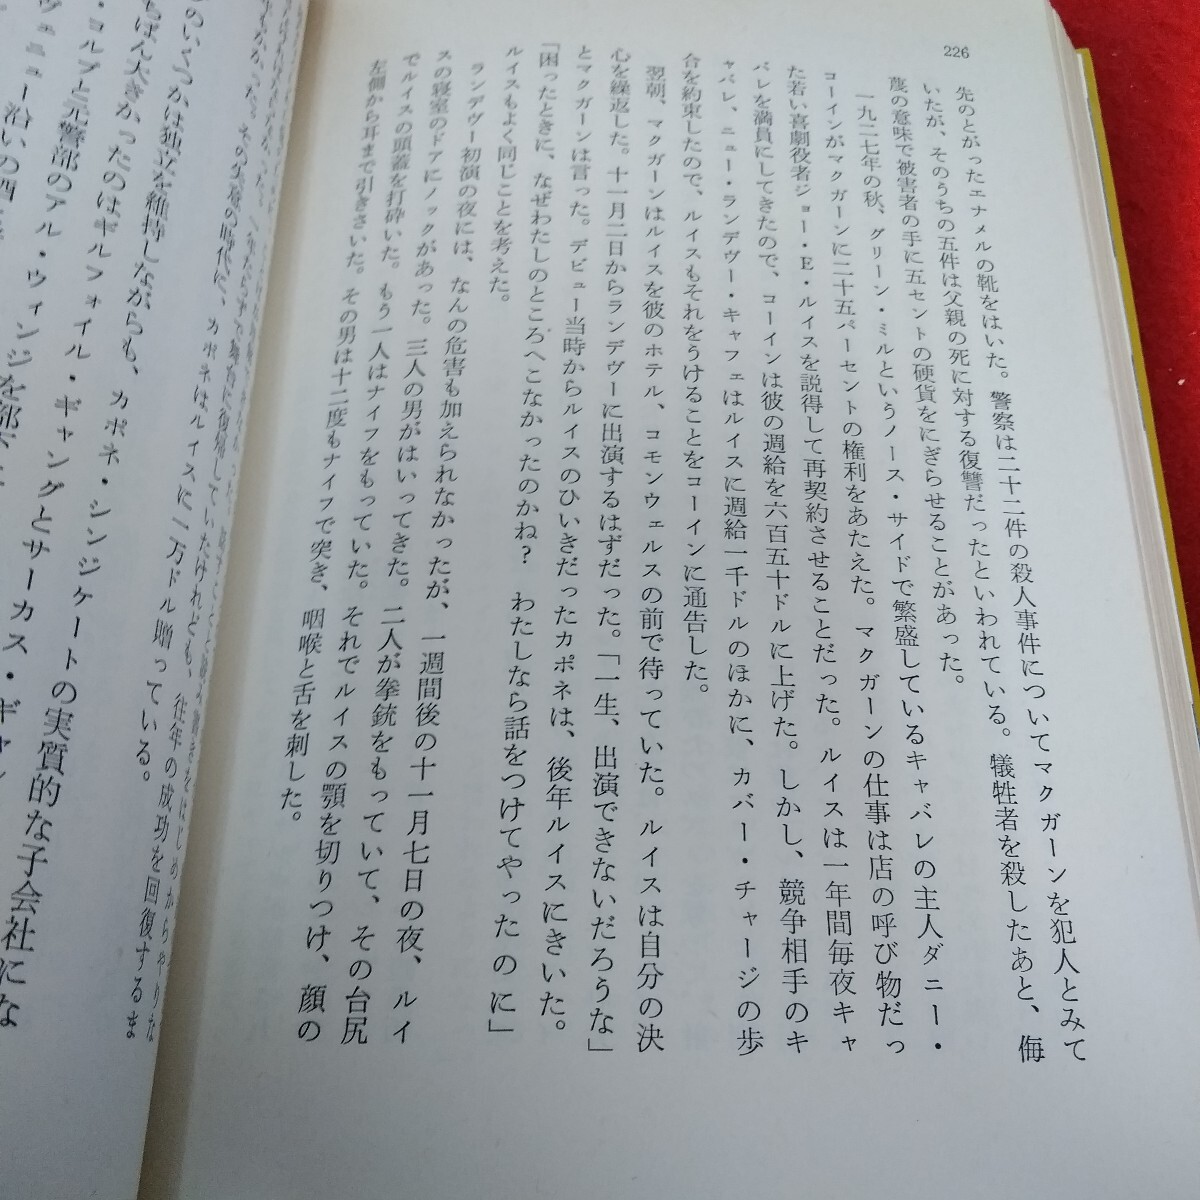 226
先のとがったエナメルの靴をはいた。警察は二十二件の殺人事件についてマクガーンを犯人とみて
いたが、そのうちの五件は父親の死に対する復讐だったといわれている。犠牲者を殺したあと、侮
蔑の意味で被害者の手に五セントの硬貨をにぎらせることがあった。
一九二七年の秋、グリーン・ミルというノース・サイドで繁盛しているキャバレの主人ダニー・
コーインがマクガーンに二十五パーセントの権利をあたえた。マクガーンの仕事は店の呼び物だっ
た若い喜劇役者ジョー・E・ルイスを説得して再契約させることだった。ルイスは一年間毎夜キャ
バレを満員にしてきたので、コーインは彼の週給を六百五十ドルに上げた。しかし、競争相手のキ
ャバレ、ニュー・ランデヴー・キャフェはルイスに週給一千ドルのほかに、カバー・チャージの歩
合を約束したので、ルイスもそれをうけることをコーインに通告した。
翌朝、マクガーンはルイスを彼のホテル、コモンウェルスの前で待っていた。ルイスは自分の決
心を繰返した。十一月二日からランデヴーに出演するはずだった。「一生、出演できないだろうな」
とマクガーンは言った。デビュー当時からルイスのひいきだったカポネは、後年ルイスにきいた。
「困ったときに、なぜわたしのところへこなかったのかね？　わたしなら話をつけてやったのに」
ルイスもよく同じことを考えた。
ランデヴー初演の夜には、なんの危害も加えられなかったが、一週間後の十一月七日の夜、ルイ
スの寝室のドアにノックがあった。三人の男がはいってきた。二人が拳銃をもっていて、その台尻
でルイスの頭蓋を打砕いた。もう一人はナイフをもっていた。それでルイスの顎を切りつけ、顔の
左側から耳まで引きさいた。その男は十二度もナイフで突き、咽喉と舌を刺した。
その失意の時代に、カポネはルイスに一万ドル贈っている。
のいくつかは独立を維持しながらも、カポネ・シンジケートの実質的な子会社にな
ちばん大きかったのはギルフォイル・ギャングとサーカス・ギャン
・コルプと元警部のアル・ウィンジを部下
ヴェニュー沿いの酒